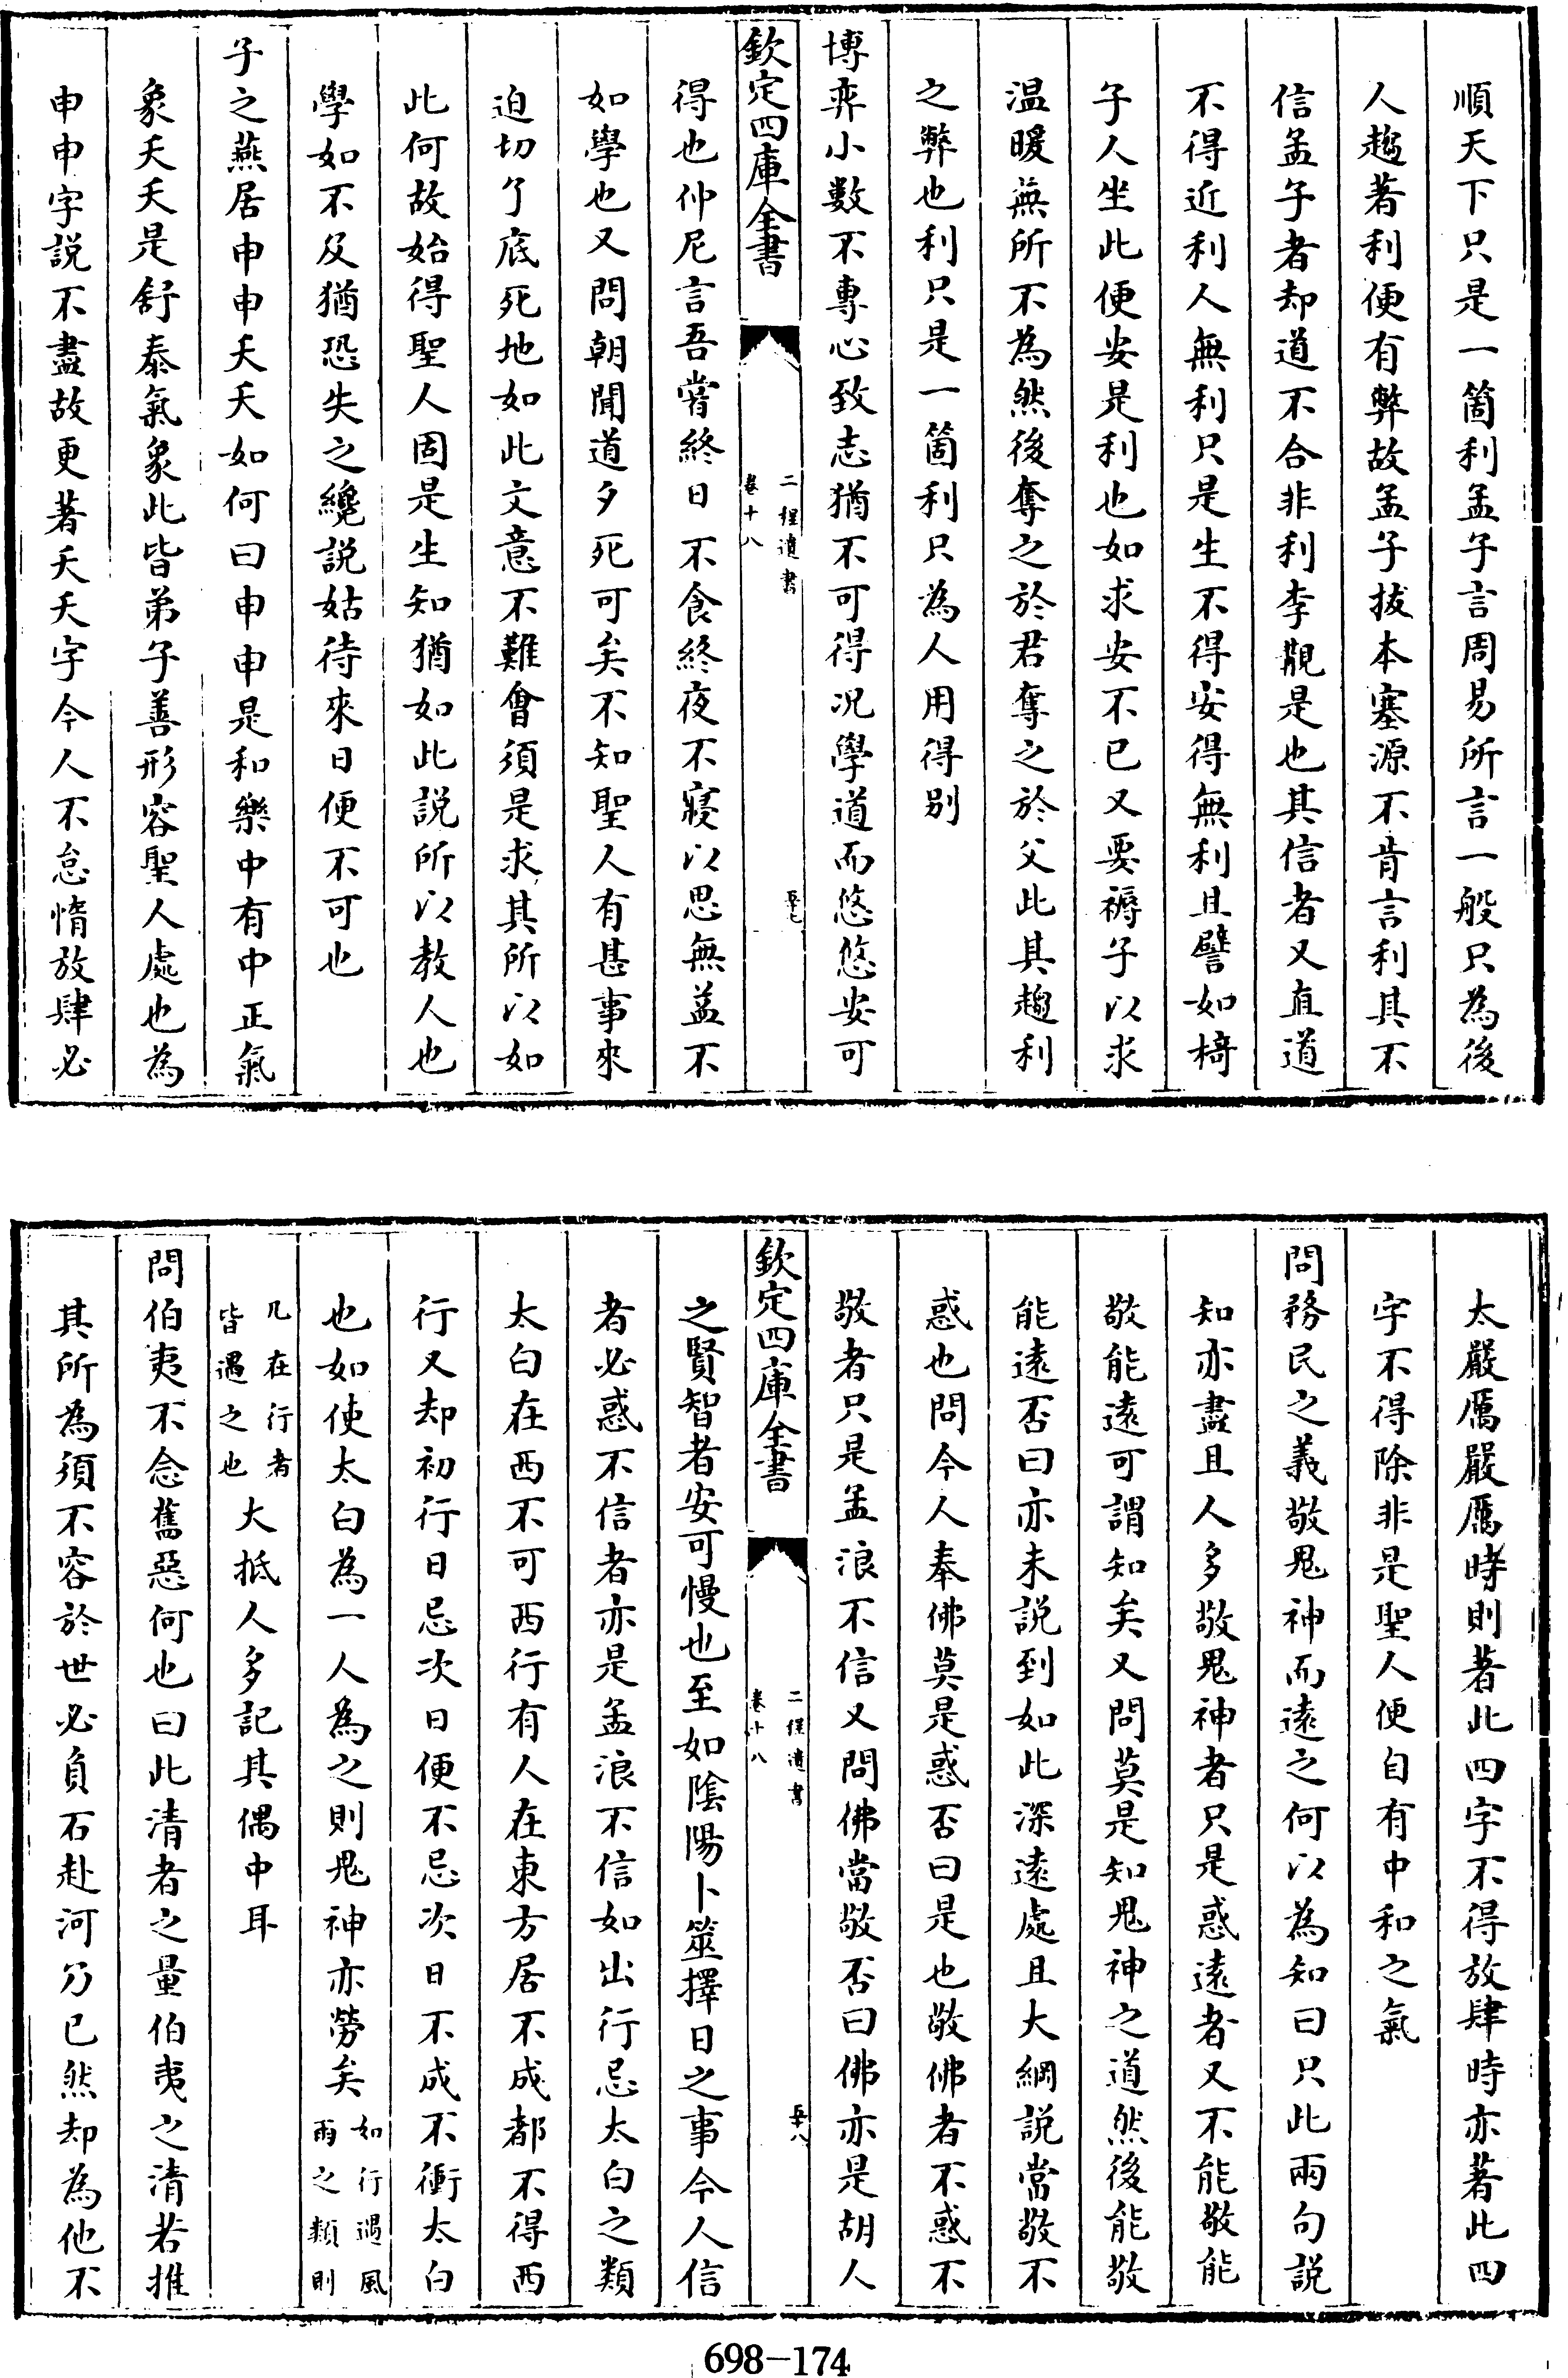 順天下只是一箇利孟子言周易所言一般只為後
人趨著利便有弊故孟子拔本塞源不肯言利其不
信孟子者却道不合非利李覯是也其信者又直道
不得近利人無利只是生不得安得無利且譬如椅
子人坐此便安是利也如求安不已又要褥子以求
温暖無所不為然後奪之於君奪之於父此其趨利
之弊也利只是一箇利只為人用得别
博弈小數不專心致志猶不可得况學道而悠悠安可
欽定四庫全書
二程遺書
卷十八
五十七
得也仲尼言吾嘗終日不食終夜不寢以思無益不
如學也又問朝聞道夕死可矣不知聖人有甚事來
迫切了底死地如此文意不難會須是求其所以如
此何故始得聖人固是生知猶如此説所以教人也
學如不及猶恐失之纔説姑待來日便不可也
子之燕居申申夭夭如何曰申申是和樂中有中正氣
象夭夭是舒泰氣象此皆弟子善形容聖人處也為
申申字説不盡故更著夭夭字今人不怠惰放肆必
太嚴厲嚴厲時則著此四字不得放肆時亦著此四
字不得除非是聖人便自有中和之氣
問務民之義敬鬼神而遠之何以為知曰只此兩句説
知亦盡且人多敬鬼神者只是惑遠者又不能敬能
敬能遠可謂知矣又問莫是知鬼神之道然後能敬
能遠否曰亦未説到如此深遠處且大綱説當敬不
惑也問今人奉佛莫是惑否曰是也敬佛者不惑不
敬者只是孟浪不信又問佛當敬否曰佛亦是胡人
欽定四庫全書
二程遺書
卷十八
五十八
之賢智者安可慢也至如陰陽卜筮擇日之事今人信
者必惑不信者亦是孟浪不信如出行忌太白之類
太白在西不可西行有人在東方居不成都不得西
行又却初行日忌次日便不忌次日不成不衝太白
也如使太白為一人為之則鬼神亦勞矣如行遇風雨之類則
凡在行者皆遇之也大抵人多記其偶中耳
問伯夷不念舊惡何也曰此清者之量伯夷之清若推
其所為須不容於世必負石赴河乃已然却為他不
698-174